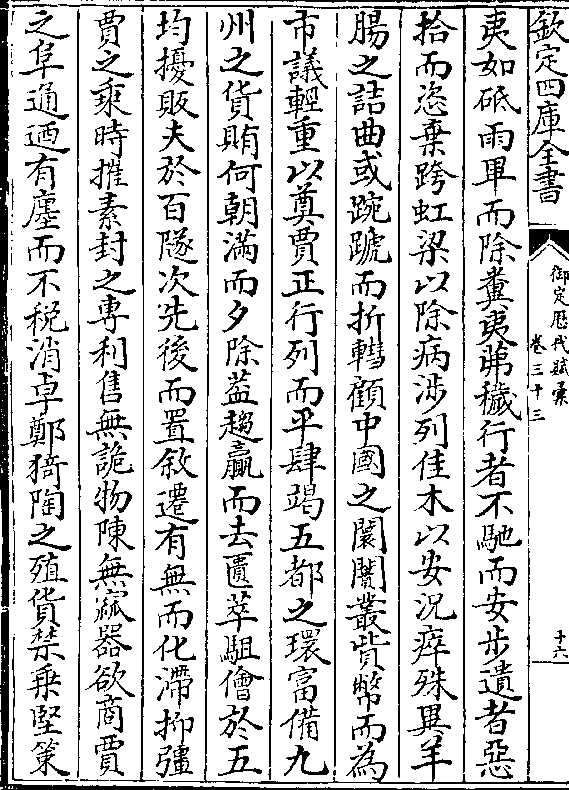 欽定四庫全書
御定歷代賦彙
卷三十三
十六
夷如砥雨畢而除糞夷茀穢行者不馳而安步遺者惡
拾而恣棄跨虹梁以除病涉列佳木以安況瘁殊異羊
腸之詰曲或踠蹏而折轊顧中國之闤闠叢貲幣而為
市議輕重以奠賈正行列而平肆竭五都之環富備九
州之貨賄何朝滿而夕除蓋趨贏而去匱萃駔儈於五
均擾販夫於百隧次先後而置敘遷有無而化滯抑彊
賈之乘時摧素封之專利售無詭物陳無窳器欲商賈
之阜通迺有廛而不稅消卓鄭猗陶之殖貨禁乘堅策